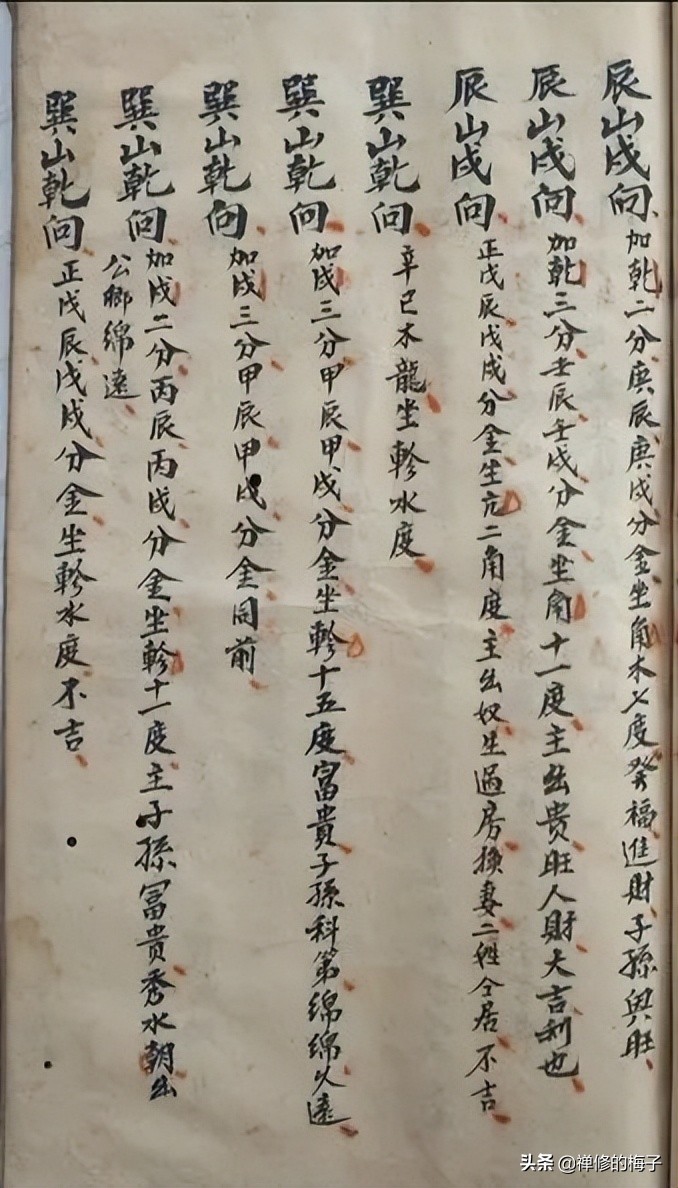 辰山戌向加乾二分庚辰庚戌分金坐角木七度發福進財子孫興旺
辰山戌向加乾三分壬辰壬戌分金坐角十一度主出贵旺人財大吉利也
辰山戌向正戊辰戊戌分金坐亢二角度主出奴生過房換妻二姓仝居不吉
巽山乾向辛巳木龍坐軫水度
巽山乾向加戌三分甲辰甲戌分金坐軫十五度富貴子孫科第綿綿久遠
巽山乾向加戌三分甲辰甲戌分金同前
巽山乾向加戌二分丙辰丙戌分金坐軫十一度主子孫冨貴秀水朝出
公卿綿遠
巽山乾向正戊辰戊戌分金坐軫水度不吉
头条 @禅修的梅子